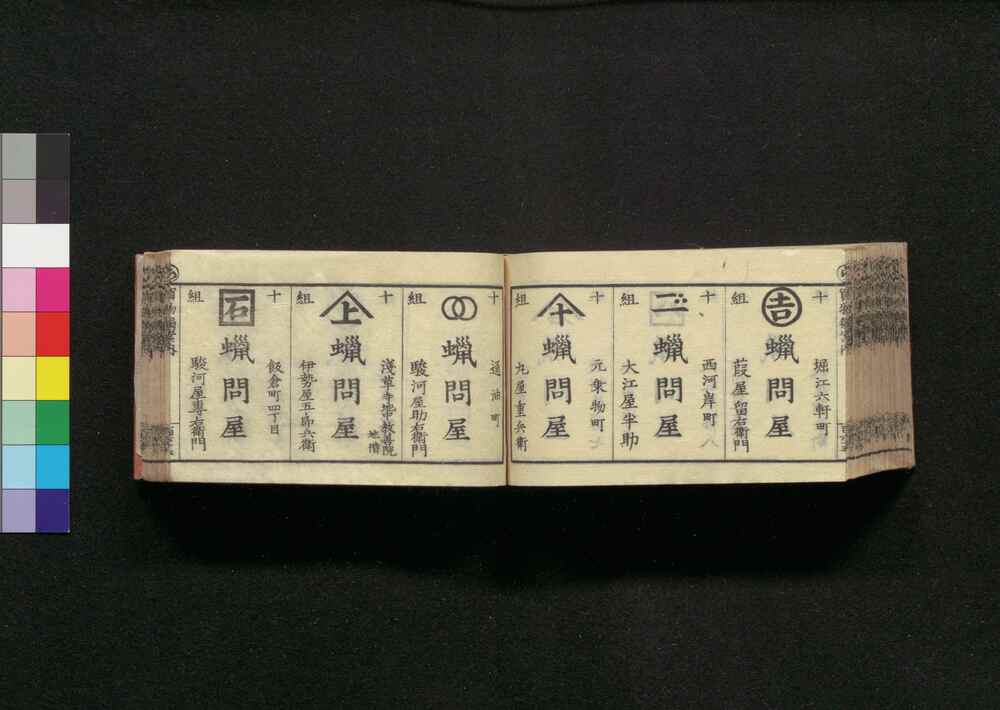 十組
吉
堀江六軒町
蠟問屋
葭屋留右衛門
十組
西河岸町
蠟問屋
大江屋半助
十組
十
元乗物町
蠟問屋
丸屋重兵衛
十組
通油町
蠟問屋
駿河屋助右衛門
十組
上
淺草寺中教善院
地借
蠟問屋
伊勢屋五郎兵衛
十組
石
飯倉町四丁目
蠟問屋
駿河屋專右衛門